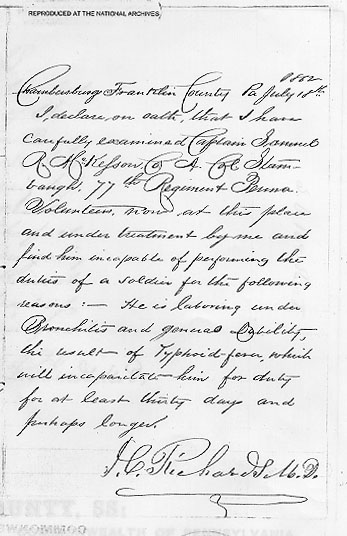 REPRODUCED AT THE NATIONAL ARCHIVES
1862
Chambersburg Franklin County Pa July 18th
I, declare, on oath, that I have
carefully examined Captain Samuel
R. McKesson, Co A. Col. Stam-
baugh, 77th Regiment Penna.
Volunteers, now at this place
and under treatment by me and
find him incapable of performing the
duties of a soldier for the following
reasons :— He is laboring under
Bronchitis and general debility,
the result of Typhoid-fever, which
will incapacitate him for duty
for at least thirty days and
perhaps longer.
J. C. Richards M.D.